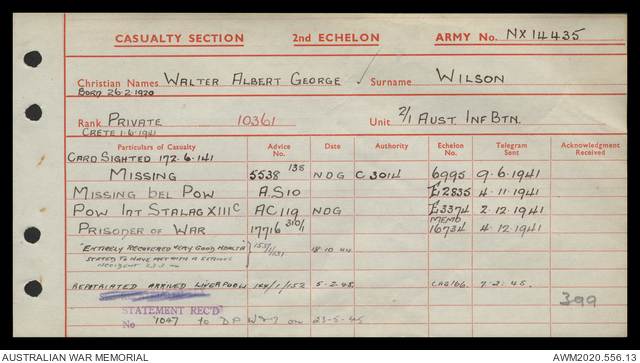 CASUALTY SECTION 2ND ECHELON ARMY No. NX14435
Christian Names WALTER ALBERT GEORGE Surname WILSON
BORN 26·2·1920
Rank PRIVATE 10361 Unit 2/1 AUST. INF BTN.
CRETE 1·6·1941
Particulars of Casualty Advice No. Date Authority Echelon No. Telegram Sent Acknowledgment Received
CARD SIGHTED 172·6·141
MISSING 5538 138 NDG C3014 6995 9·6·1941
MISSING BEL POW A.S10 E2835 4·11·1941
POW INT STALAG XIIIC AC119 NDG E3374 2·12·1941
PRISONER OF WAR 17716 310/1 MEMO 16734 4·12·1941
"ENTIRELY RECOVERED VERY GOOD HEALTH 18·10·44
STATED TO HAVE MET WITH A SERIOUS
ACCIDENT
REPATRIATED ARRIVED LIVERPOOL 124/1/152 5·2·45. CAS166. 7·2·45.
STATEMENT REC'D 399
No 1047 to on 23-5-45
AUSTRALIAN WAR MEMORIAL AWM2020.556.13